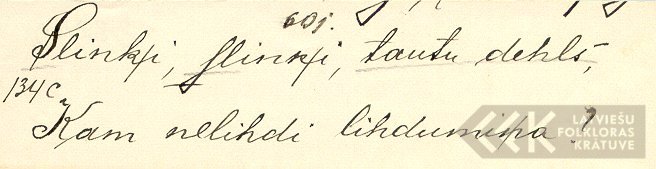 60j.
Slinkji, slinkji, tautu dehls,
134c
Kam nelihdi lihdumiņa?
LATVIEŠU
FOLKLORAS
KRĀTUVE